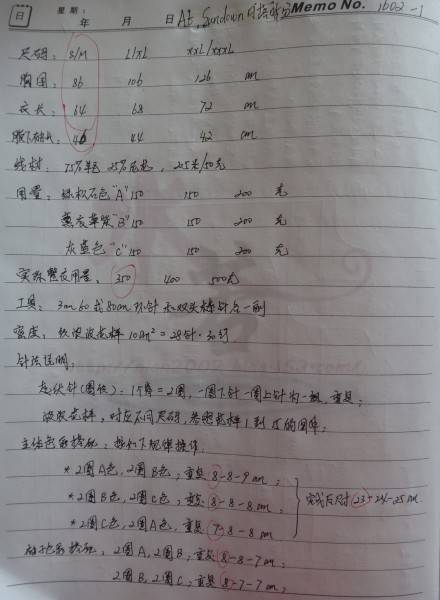 日 星期: 年 月 日 At Sundown 日落时分 Memo No. 1602-1
尺码: S/M L/XL XXL/XXXL
胸围: 86 106 126 cm
衣长: 64 68 72 cm
腋下袖长: 46 44 42 cm
线材: 75%羊毛 25%尼龙, 205米/50克
用量: 绿松石色"A" 150 150 200 克
"B" 150 150 200 克
灰蓝色"C" 150 150 200 克
实际整衣用量: 350 400 500克
工具: 3mm 60或80cm环针和双头棒针各一副
密度: 花样 10cm² = 28针·30行
针法说明:
起伏针(圈织): 1条 = 2圈, 一圈下针一圈上针为一组, 重复;
波浪花样, 对应不同尺码, 参照花样1到15的图解;
主体色彩搭配: 按如下规律操作.
*2圈A色, 2圈B色, 重复 8-8-9 cm;
*2圈B色, 2圈C色, 重复 8-8-8 cm; 完成后尺寸 23-24-25 cm
*2圈C色, 2圈A色, 重复 7-8-8 cm
袖子色彩搭配, 2圈A, 2圈B, 重复 8-8-7 cm;
2圈B, 2圈C, 重复 8-7-7 cm;